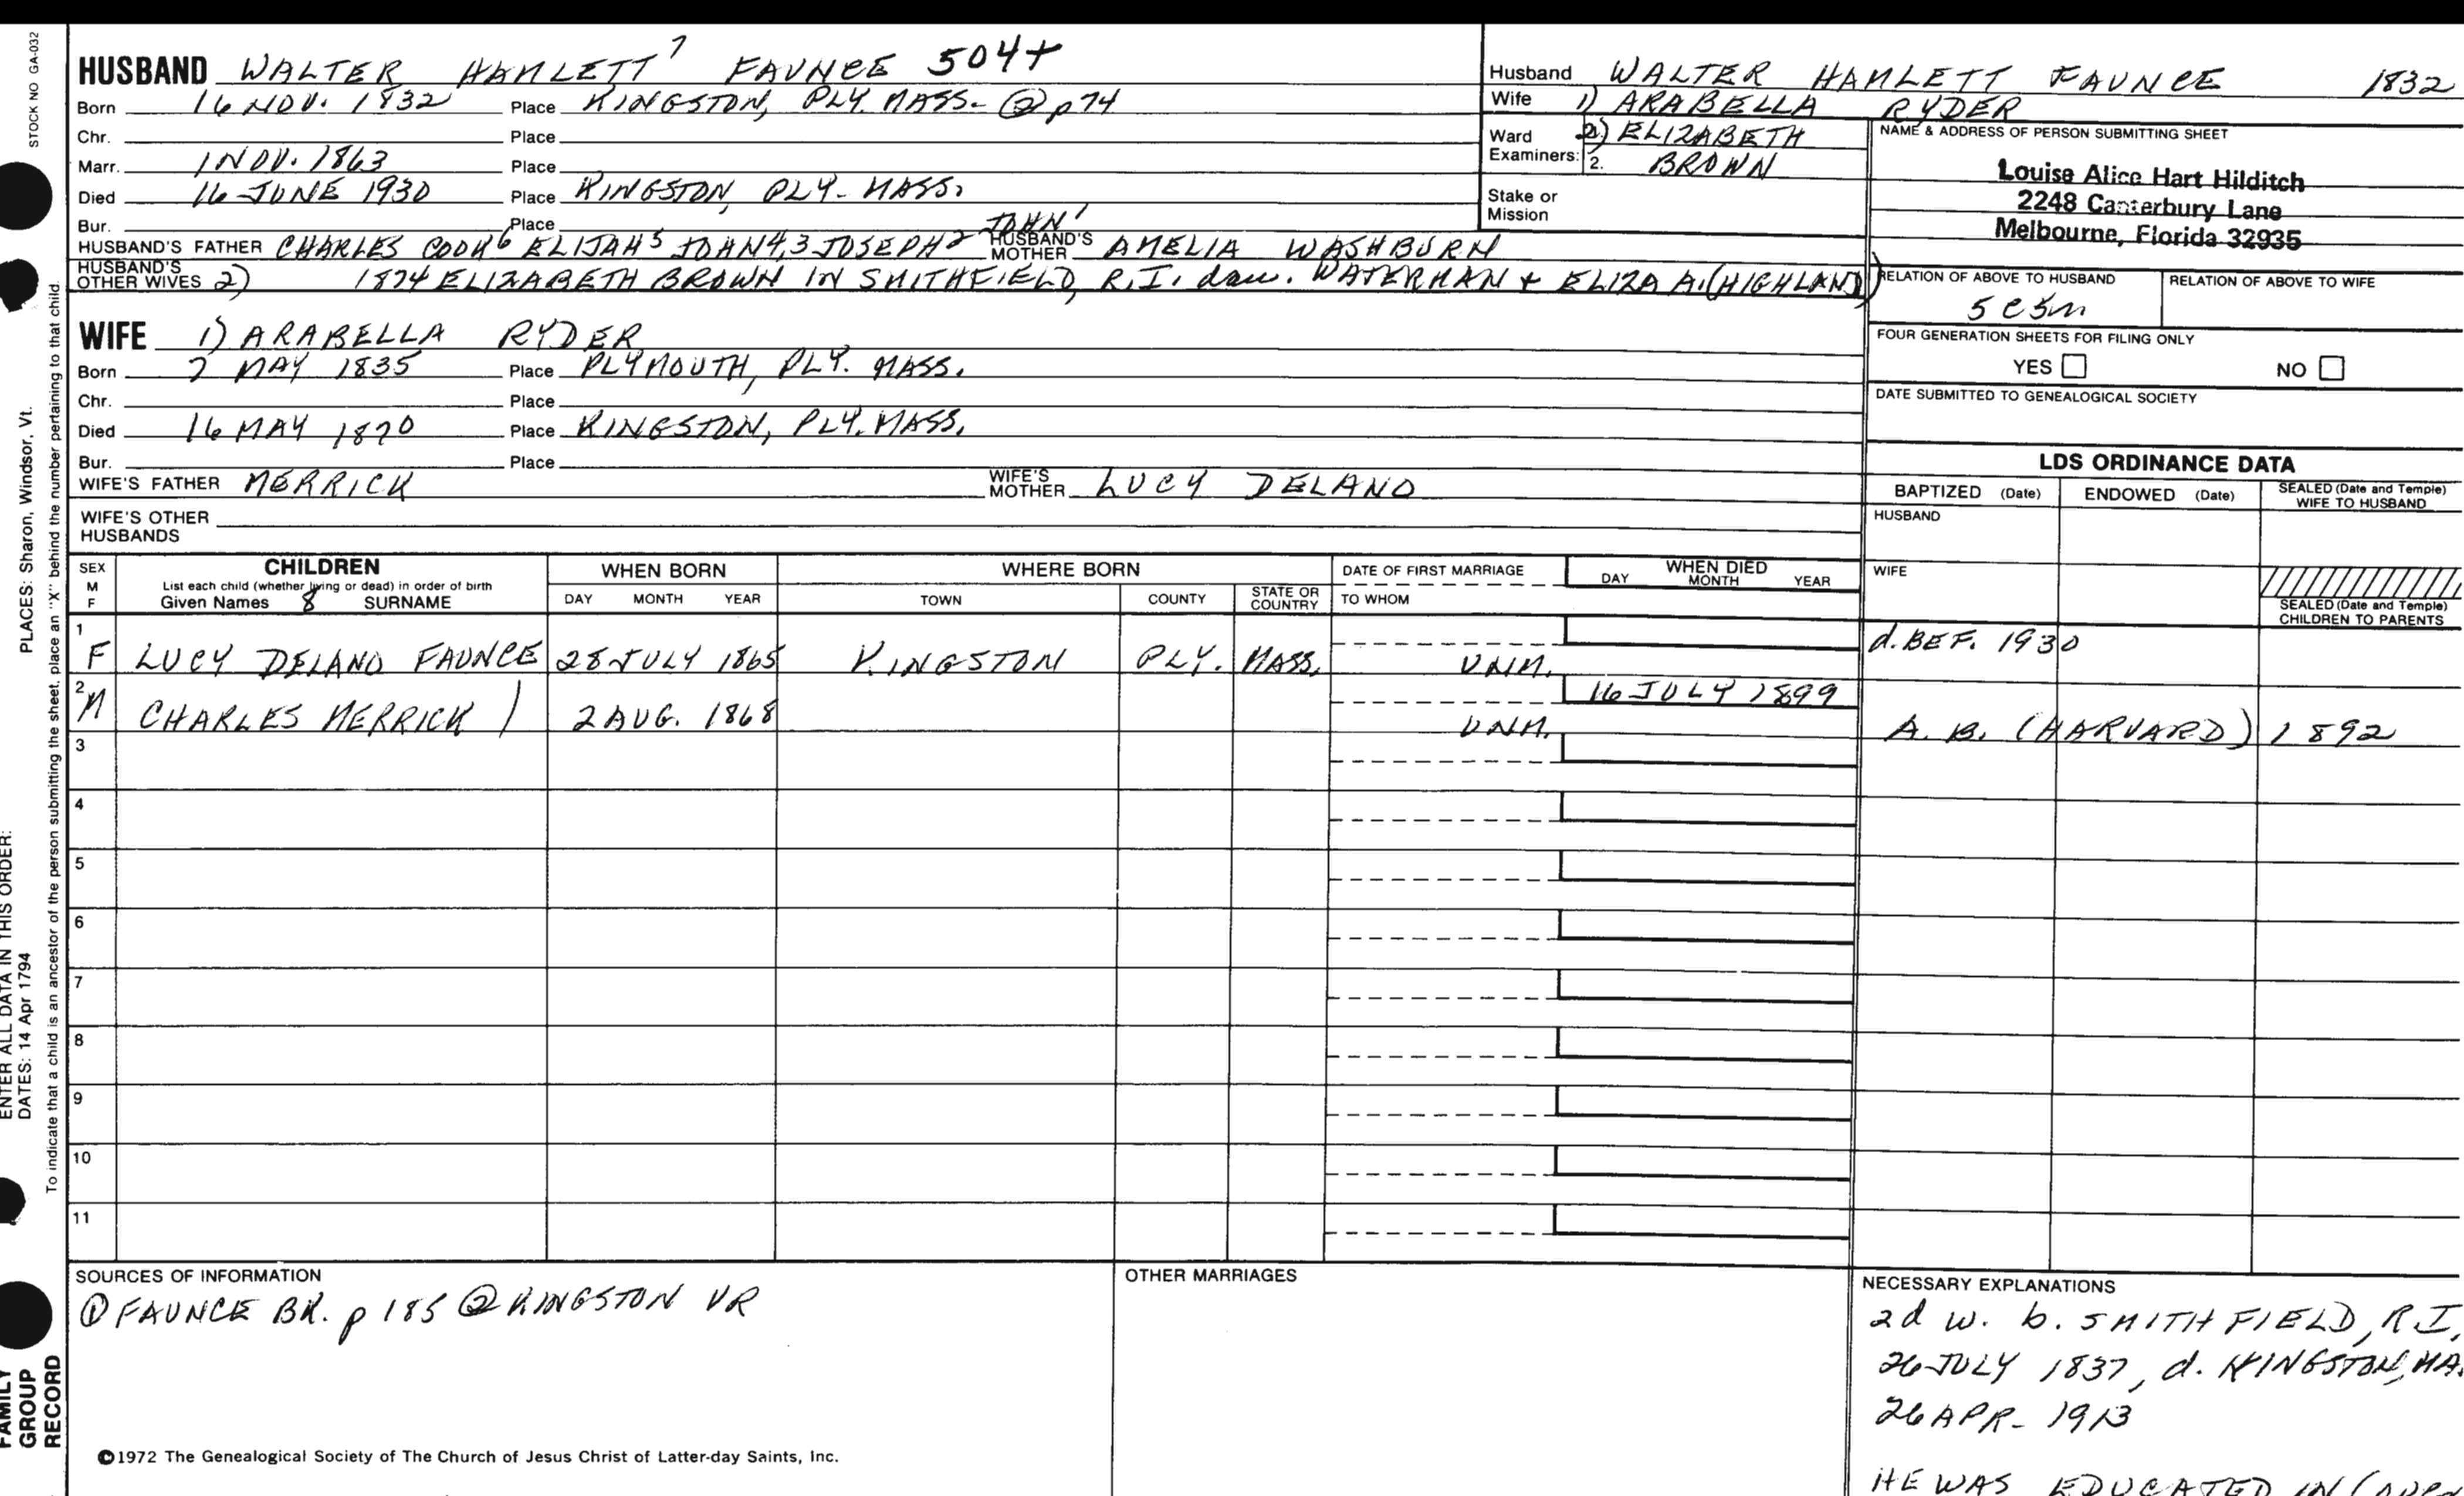 STOCK NO GA-032
HUSBAND WALTER HAMLETT 7 FAUNCE 504+
Born 16 NOV. 1832 Place KINGSTON, PLY. MASS. ② p74
Chr. Place
Marr. 1 NOV. 1863 Place
Died 16 JUNE 1930 Place KINGSTON, PLY. MASS.
Bur. Place JOHN 1
HUSBAND'S FATHER CHARLES COOK 6 ELIJAH 5 JOHN 4,3 JOSEPH 2 HUSBAND'S MOTHER AMELIA WASHBURN
HUSBAND'S OTHER WIVES 2) 1874 ELIZABETH BROWN IN SMITHFIELD, R.I. dau. WATERMAN + ELIZA A. (HIGHLAND)
WIFE 1) ARABELLA RYDER
Born 7 MAY 1835 Place PLYMOUTH, PLY. MASS.
Chr. Place
Died 16 MAY 1870 Place KINGSTON, PLY. MASS.
Bur. Place
WIFE'S FATHER MERRICK WIFE'S MOTHER LUCY DELANO
WIFE'S OTHER
HUSBANDS
Husband WALTER HAMLETT FAUNCE 1832
Wife 1) ARABELLA RYDER
Ward 2) ELIZABETH
Examiners: 2. BROWN
Stake or
Mission
NAME & ADDRESS OF PERSON SUBMITTING SHEET
Louise Alice Hart Hilditch
2248 Canterbury Lane
Melbourne, Florida 32935
RELATION OF ABOVE TO HUSBAND RELATION OF ABOVE TO WIFE
5 c 5m
FOUR GENERATION SHEETS FOR FILING ONLY
YES NO
DATE SUBMITTED TO GENEALOGICAL SOCIETY
LDS ORDINANCE DATA
BAPTIZED (Date) ENDOWED (Date) SEALED (Date and Temple)
WIFE TO HUSBAND
HUSBAND
WIFE
SEALED (Date and Temple)
CHILDREN TO PARENTS
SEX CHILDREN WHEN BORN WHERE BORN DATE OF FIRST MARRIAGE WHEN DIED
M List each child (whether living or dead) in order of birth DAY MONTH YEAR
F Given Names 8 SURNAME DAY MONTH YEAR TOWN COUNTY STATE OR COUNTRY TO WHOM
1
F LUCY DELANO FAUNCE 28 JULY 1865 KINGSTON PLY. MASS. UNM. d. BEF. 1930
2 16 JULY 1899
M CHARLES MERRICK 2 AUG. 1868 UNM. A.B. (HARVARD) 1892
3
4
5
6
7
8
9
10
11
SOURCES OF INFORMATION
① FAUNCE BK. p 185 ② KINGSTON VR
OTHER MARRIAGES
NECESSARY EXPLANATIONS
2d w. b. SMITHFIELD, R.I.
26 JULY 1837, d. KINGSTON, MA.
26 APR. 1913
HE WAS EDUCATED IN
©1972 The Genealogical Society of The Church of Jesus Christ of Latter-day Saints, Inc.
PLACES: Sharon, Windsor, Vt.
ENTER ALL DATA IN THIS ORDER:
DATES: 14 Apr 1794
To indicate that a child is an ancestor of the person submitting the sheet, place an "X" behind the number pertaining to that child.
FAMILY
GROUP
RECORD